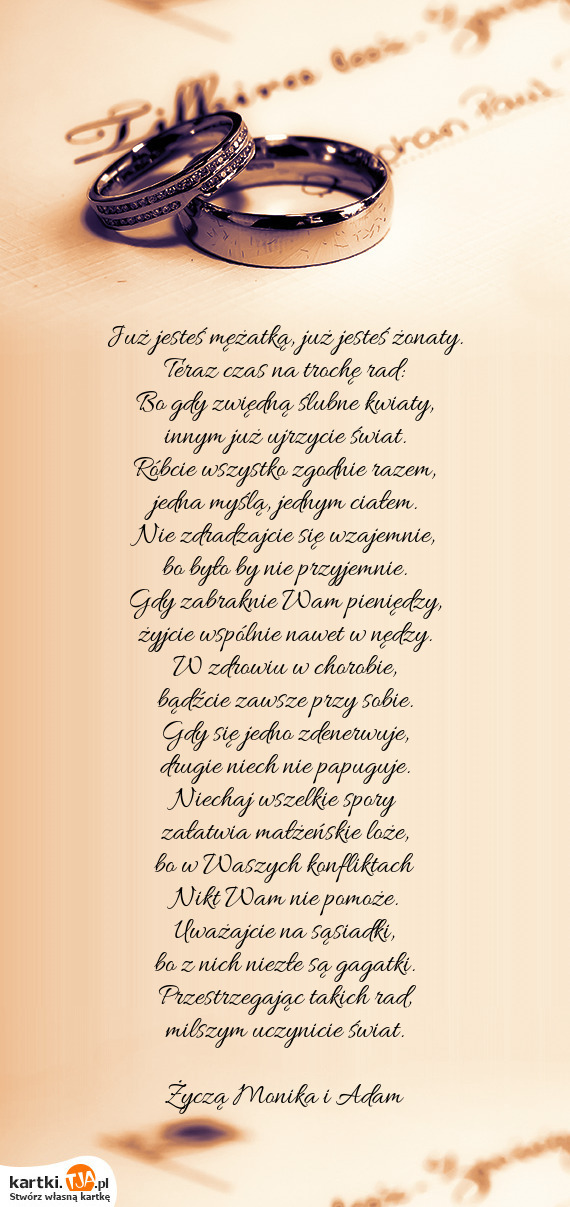 Już jesteś mężatką, już jesteś żonaty.
Teraz czas na trochę rad:
Bo gdy zwiędną ślubne kwiaty,
innym już ujrzycie świat.
Róbcie wszystko zgodnie razem,
jedna myślą, jednym ciałem.
Nie zdradzajcie się wzajemnie,
bo było by nie przyjemnie.
Gdy zabraknie Wam pieniędzy,
żyjcie wspólnie nawet w nędzy.
W zdrowiu w chorobie,
bądźcie zawsze przy sobie.
Gdy się jedno zdenerwuje,
drugie niech nie papuguje.
Niechaj wszelkie spory
załatwia małżeńskie loże,
bo w Waszych konfliktach
Nikt Wam nie pomoże.
Uważajcie na sąsiadki,
bo z nich niezłe są gagatki.
Przestrzegając takich rad,
milszym uczynicie świat.
Życzą Monika i Adam
kartki.TJA.pl
Stwórz własną kartkę